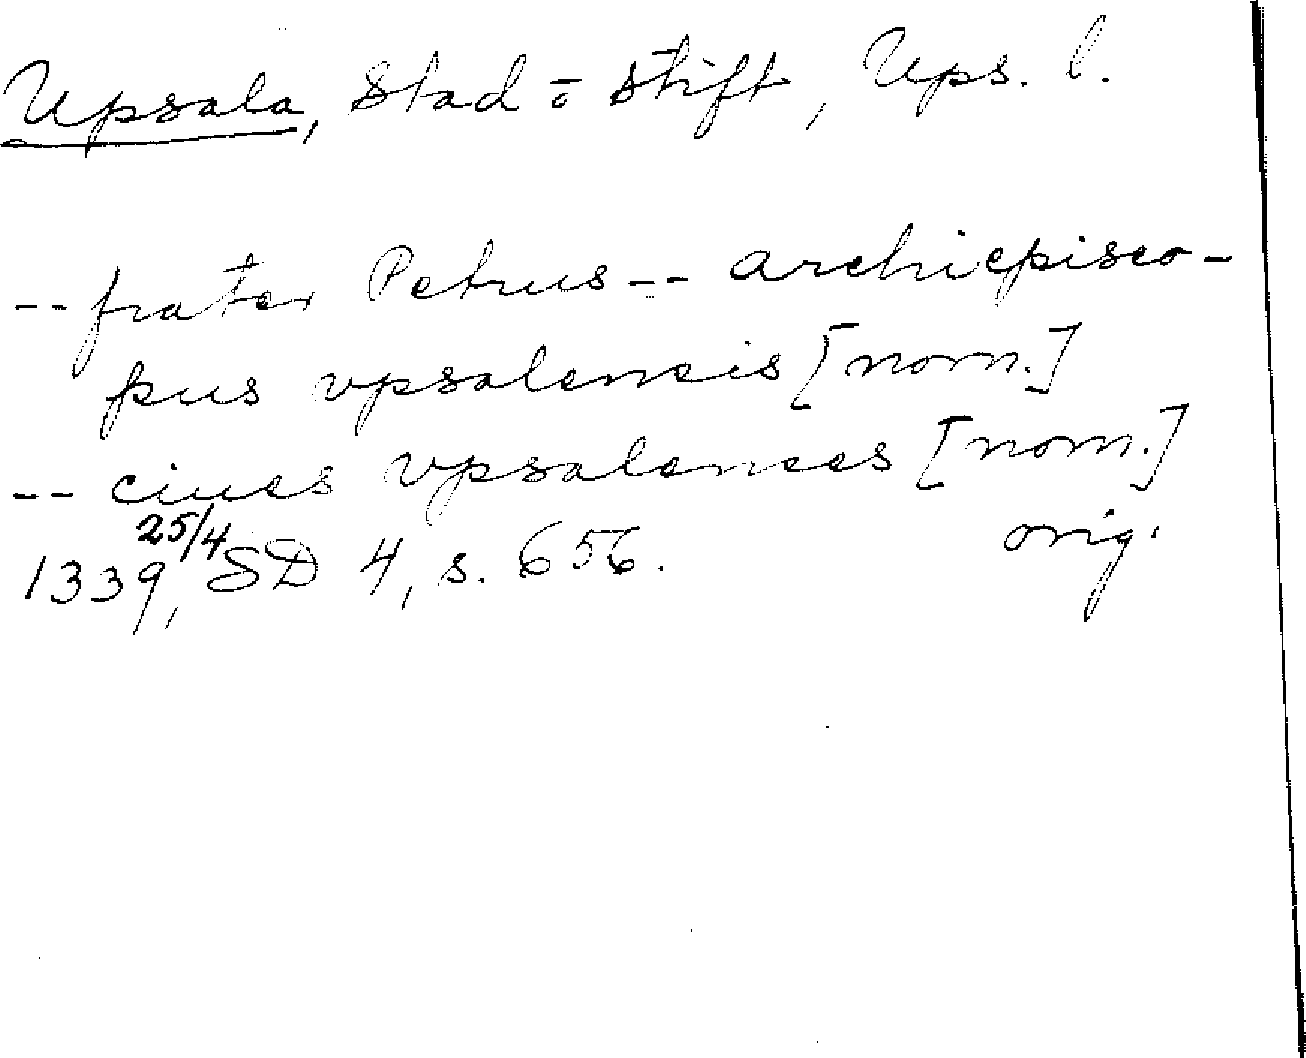 Upsala, Stad o stift, Ups. l.
-- frater Petrus -- archiepisco-
pus vpsalensis [nom.]
-- ciues vpsalenses [nom.]
1339 25/4, SD 4, s. 656. orig.